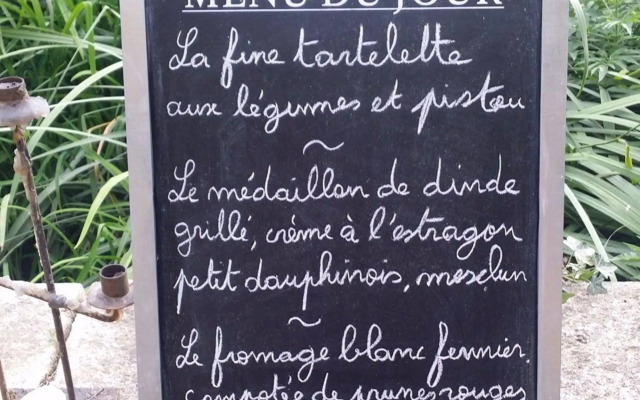 MENU DU JOUR
La fine tartelette
aux légumes et pistou
~
Le médaillon de dinde
grillé, crème à l'estragon
petit dauphinois, mesclun
~
Le fromage blanc fermier,
compotée de prunes rouges